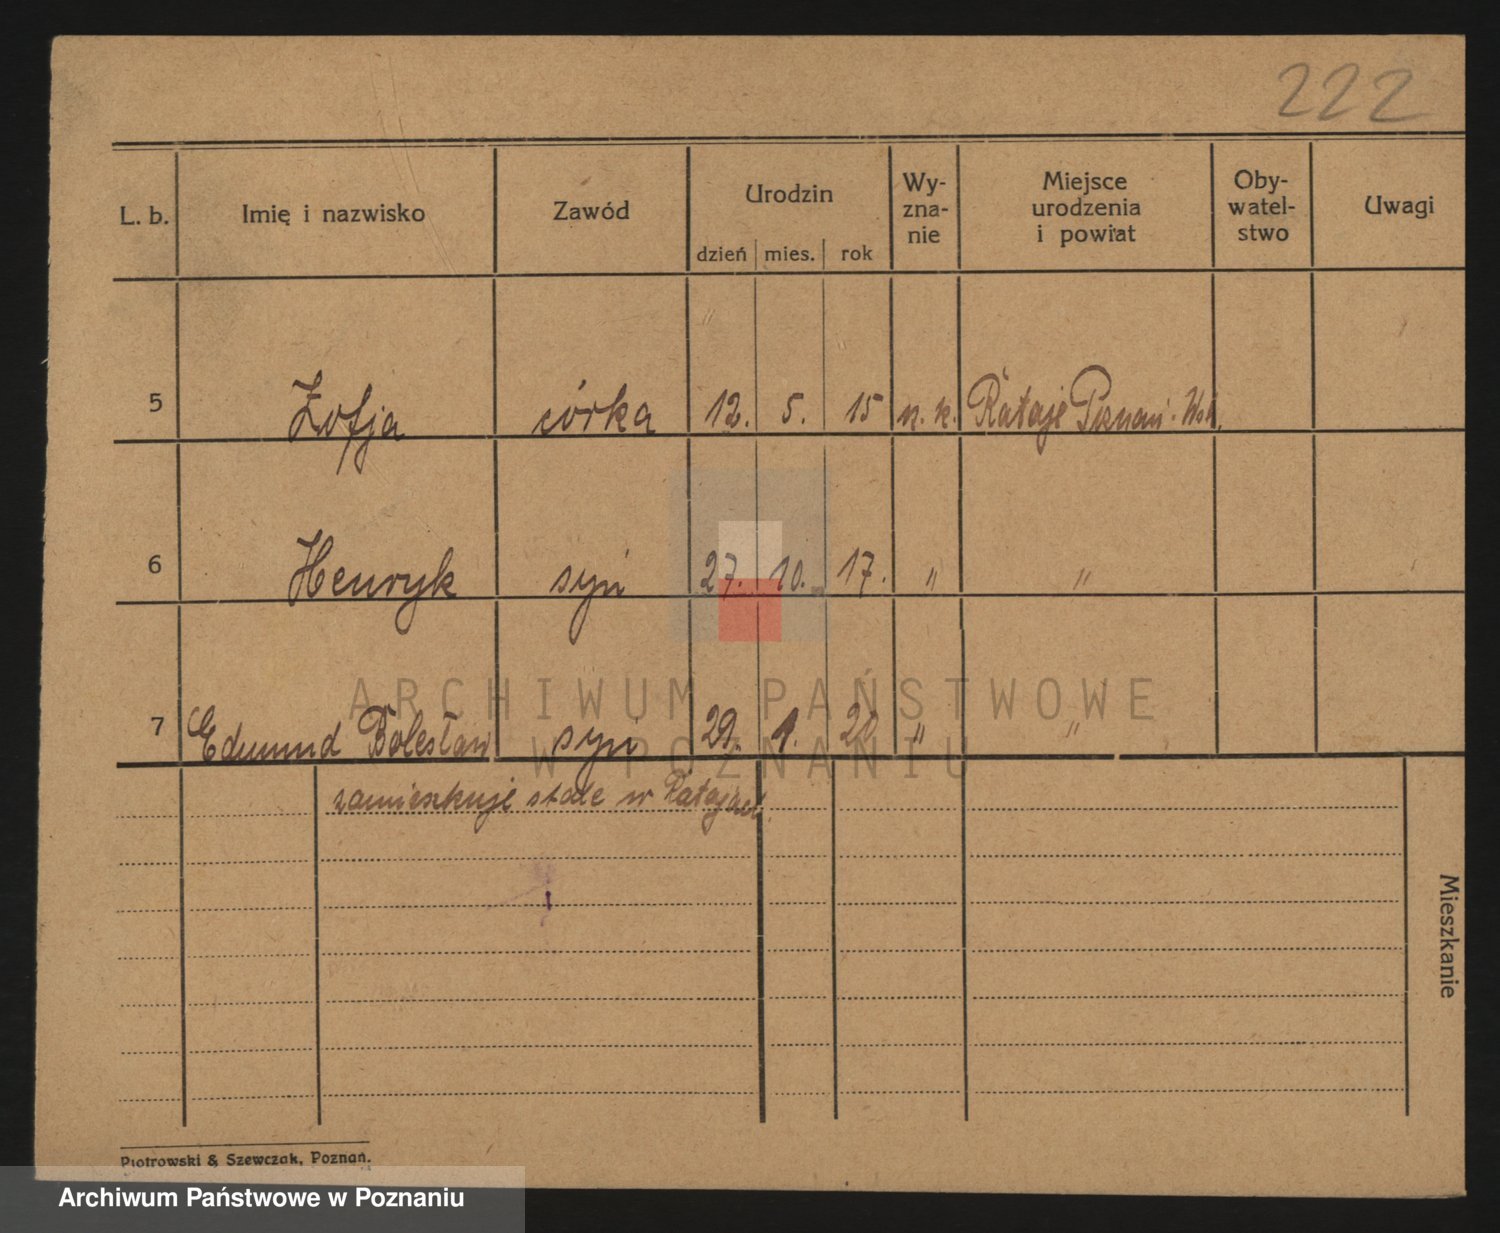 222
L. b. Imię i nazwisko Zawód Urodzin dzień mies. rok Wy-zna-nie Miejsce urodzenia i powiat Oby-watel-stwo Uwagi
5 Zofja córka 12. 5. 15 r. k. Rataje Poznań-Wsch.
6 Henryk syn 27. 10. 17. " "
7 Edmund Bolesław syn 29. 1. " "
zamieszkuje stale w Ratajach.
Mieszkanie
Piotrowski & Szewczak, Poznań.
ARCHIWUM PAŃSTWOWE
W POZNANIU
Archiwum Państwowe w Poznaniu